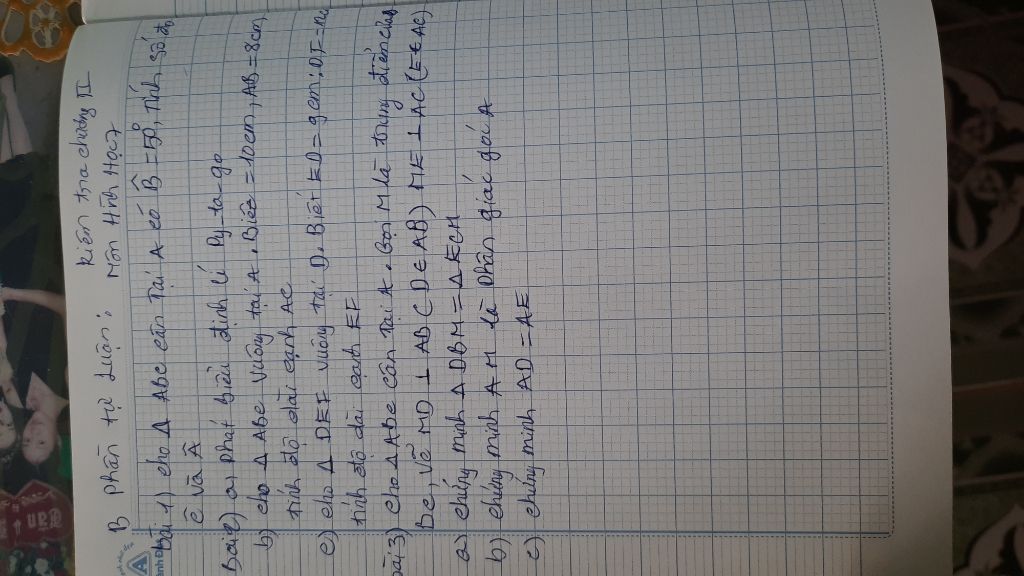 Kiểm tra chương II
B phần tự luận: Môn Hình Học 7
Bài 1) cho Δ ABC cân tại A có B̂ = 50°, tính số đo
Ĉ và Â
Bài 2) a) phát biểu định lí Py-ta-go
b) cho Δ ABC vuông tại A. Biết BC = 10cm, AB = 8cm,
tính độ dài cạnh AC
c) cho Δ DEF vuông tại D. Biết ED = 9cm; DF =
tính độ dài cạnh EF
Bài 3) cho Δ ABC cân tại A. Gọi M là trung điểm cạnh
BC, vẽ MD ⊥ AB (D ∈ AB) ME ⊥ AC (E ∈ AC)
a) chứng minh Δ DBM = Δ ECM
b) chứng minh AM là phân giác góc A
c) chứng minh AD = AE
A